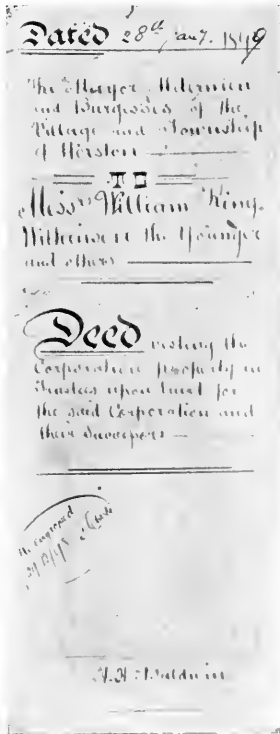 Dated 28th Jany. 1879
The Mayor Aldermen
and Burgesses of the
Village and Township
of
TO
Messrs William King
Wilkinson the Younger
and others
Deed vesting the
Corporation property in
Trustees upon trust for
the said Corporation and
their Successors
H. H. Baldwin